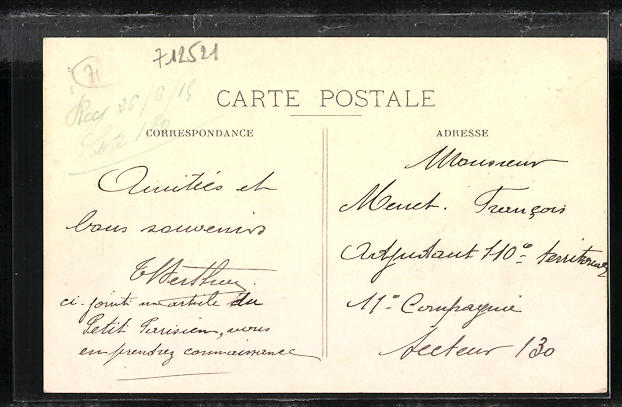 71
712521
Rec 26/6/15
CARTE POSTALE
CORRESPONDANCE
ADRESSE
Amitiés et
bons souvenirs
ci-joint un article du
Petit Parisien, vous
en prendrez connaissance
Monsieur
Menet. François
Adjudant 110e territorial
11e Compagnie
Secteur 130